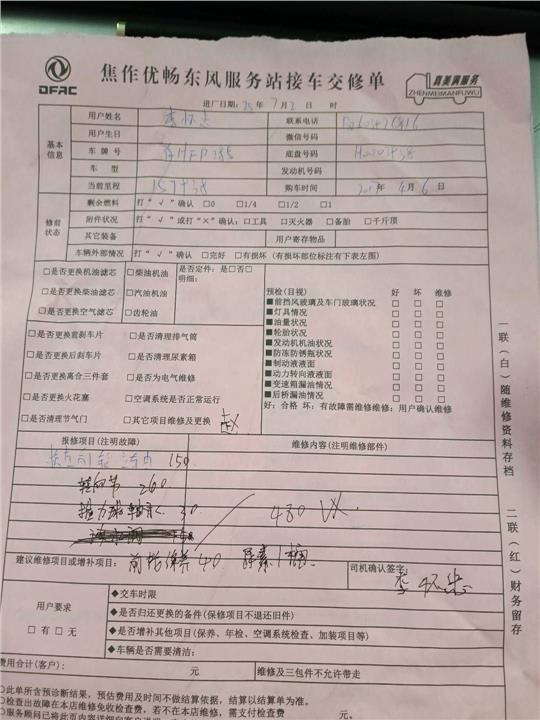 DFAC
焦作优畅东风服务站接车交修单
真美满服务
ZHENMEIMANFUWU
进厂日期: 25年 7月 2日 时
基本信息
用户姓名 联系电话
用户生日 微信号码
车 牌 号 底盘号码 H000438
车 型 发动机号码
当前里程 157438 购车时间 年 4月 6日
修前状态
剩余燃料 打“√”确认 □0 □1/4 □1/2 □1
附件状况 打“√”或打“×”确认:□工具 □灭火器 □备胎 □千斤顶
其它装备 用户寄存物品
车辆外部情况 打“√”确认 □完好 □有损坏 (有损坏部位标注有下表左图)
□是否更换机油滤芯 □柴油机油 是否定件: 是□否□
明细:
□是否更换柴油滤芯 □汽油机油
□是否更换空气滤芯 □齿轮油
预检(目视) 好 坏 维修
■前挡风玻璃及车门玻璃状况 □ □ □
■灯具情况 □ □ □
■油量状况 □ □ □
■轮胎状况 □ □ □
■发动机机油状况 □ □ □
■防冻防锈瓶状况 □ □ □
■制动液液面 □ □ □
■动力转向液液面 □ □ □
■变速箱漏油情况 □ □ □
■后桥漏油情况 □ □ □
好:合格 坏:有故障需维修维修:用户确认维修
□是否更换前刹车片 □是否清理排气筒
□是否更换后刹车片 □是否清理尿素箱
□是否更换离合三件套 □是否为电气维修
□是否更换火花塞 □空调系统是否正常运行
□是否清理节气门 □其它项目维修及更换
报修项目(注明故障) 维修内容(注明维修部件)
150
转向节 260
30
480
建议维修项目或增补项目: 40 尿素1桶
司机确认签字:
用户要求
□有□无
◆交车时限
◆是否归还更换的备件(保修项目不退还旧件)
◆是否增补其他项目(保养、年检、空调系统检查、加装项目等)
◆车辆是否需要清洁:
费用合计(客户): 元 维修及三包件不允许带走
◇此单所含预诊断结果,预估费用及时间不做结算依据,结算以结算单为准。
◇检查出故障在本店维修免收检查费,若不在本店维修,需支付检查费 元。
一联(白)随维修资料存档
二联(红)财务留存